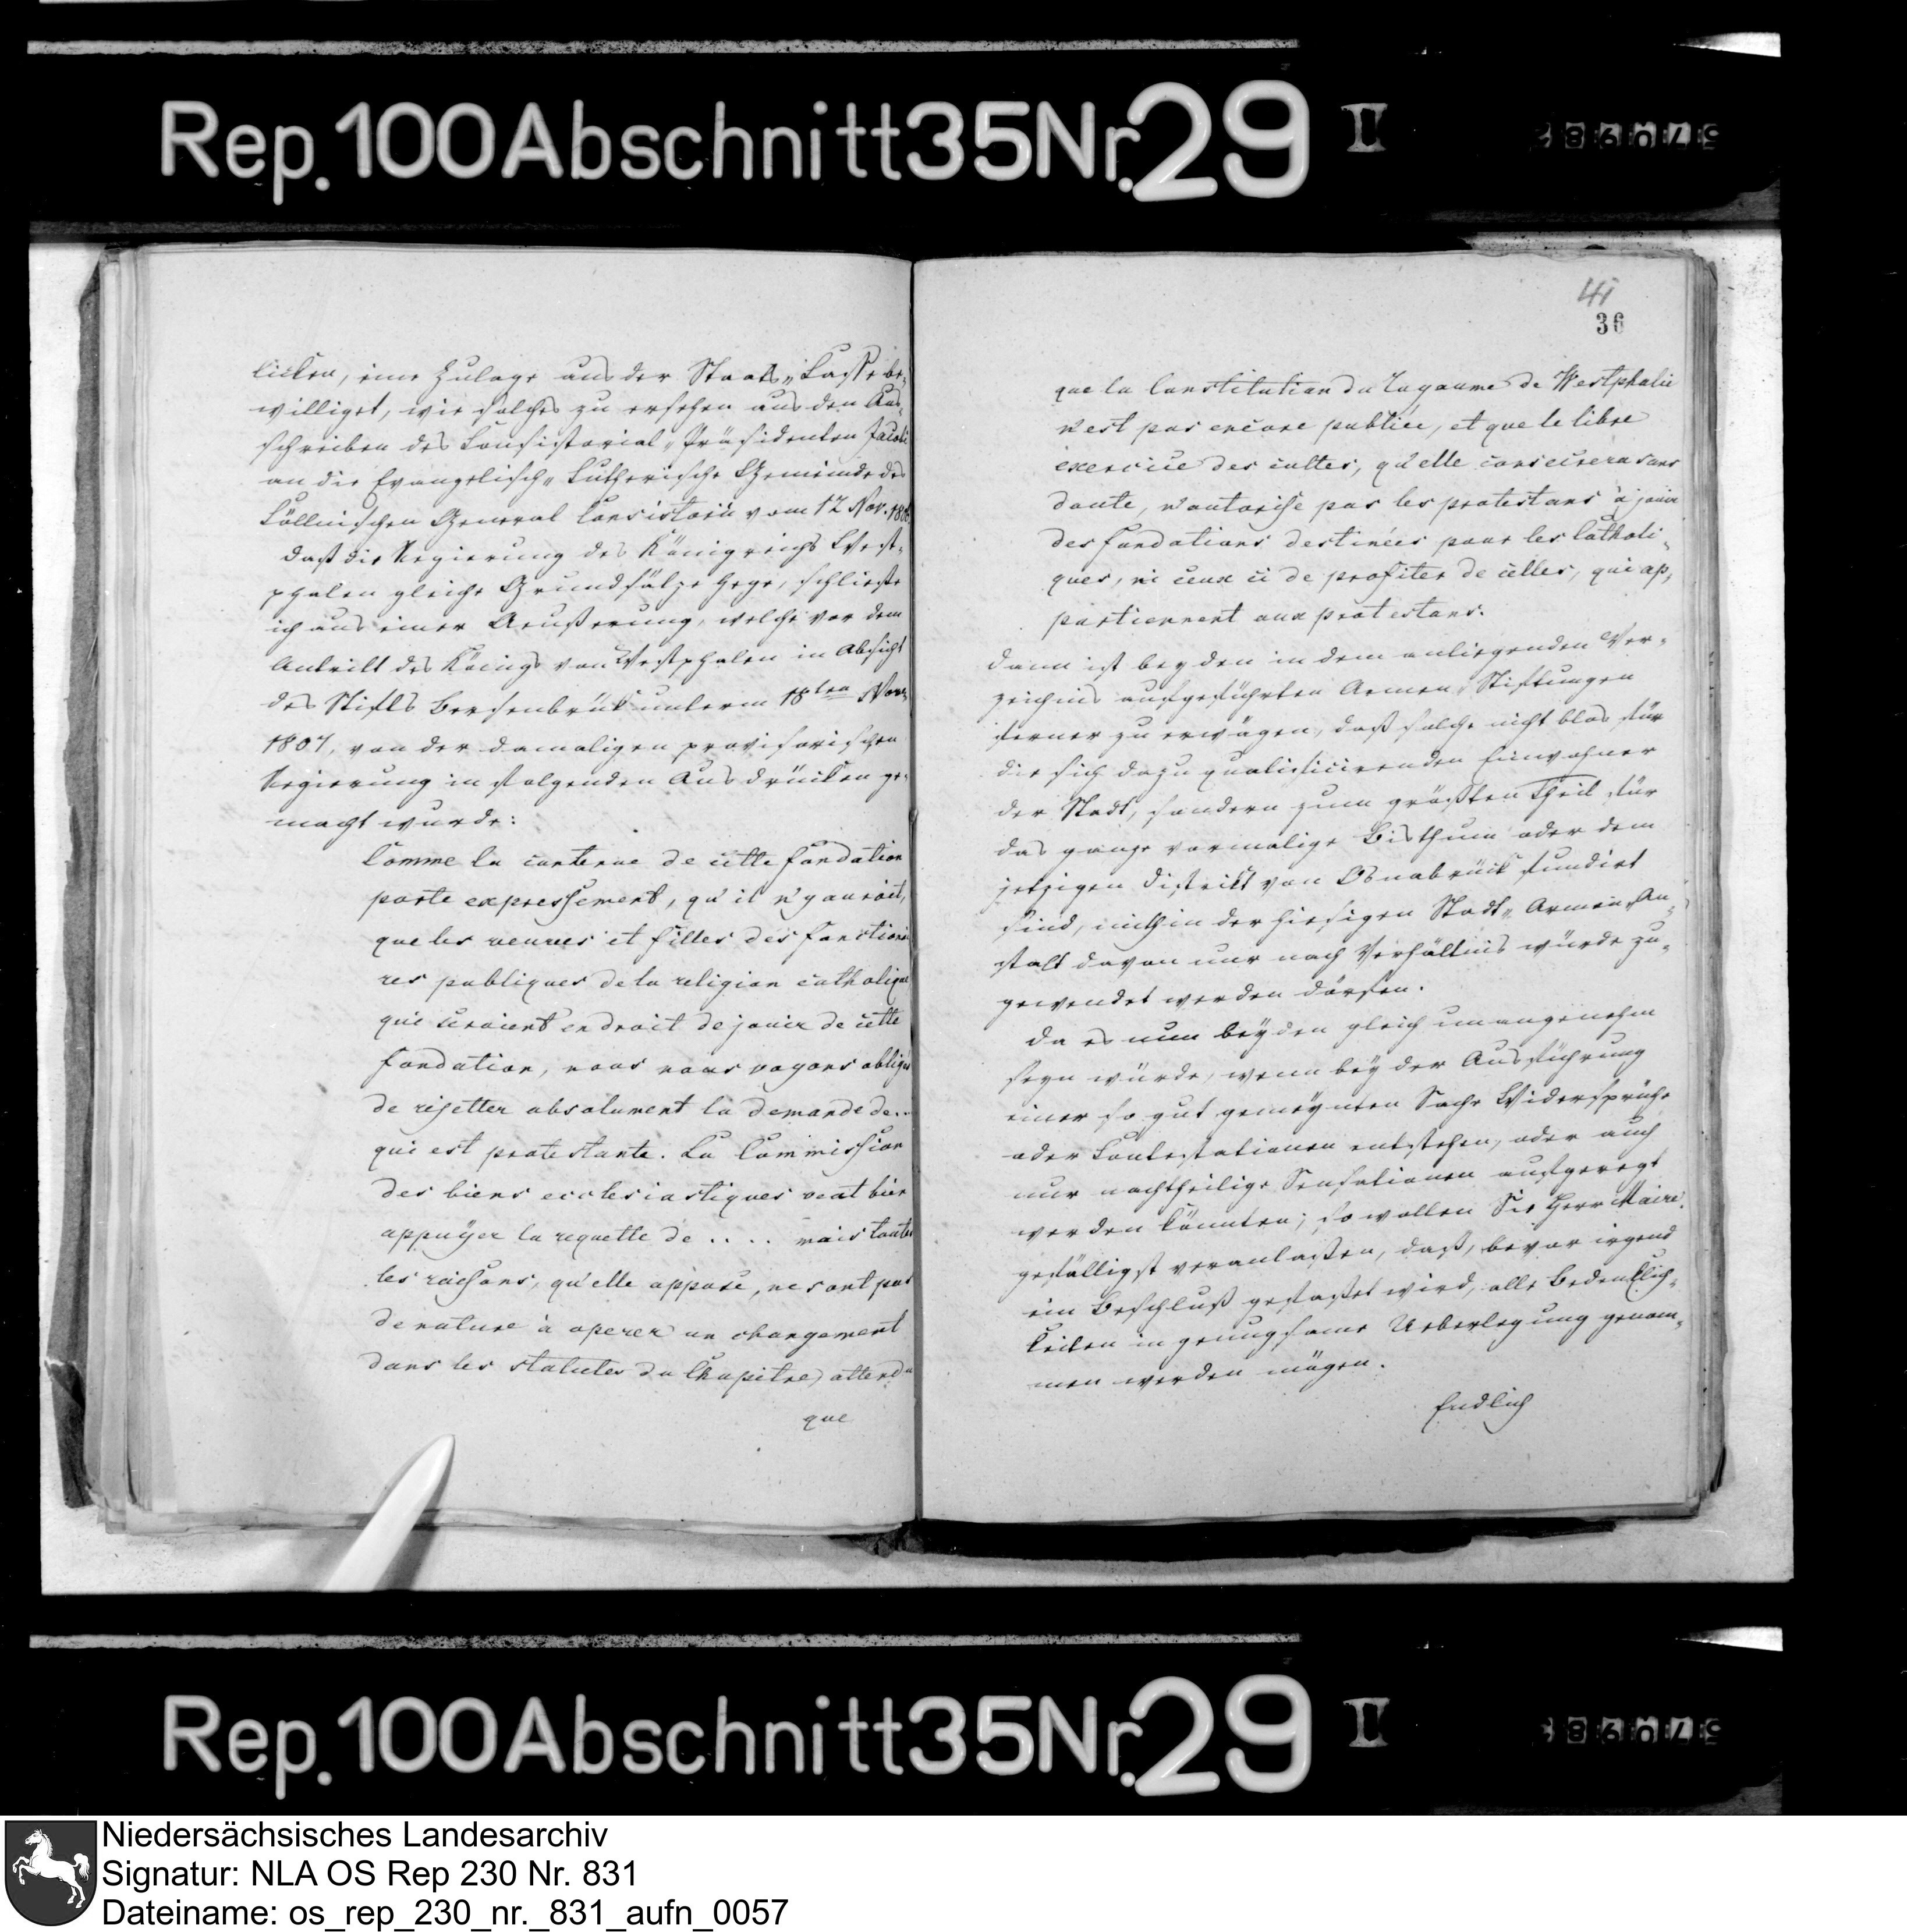 Rep. 100 Abschnitt 35 Nr. 29 II
licken, eine Zulage aus der Staats„Casse be„
williget, wie solches zu ersehen aus dem Aus„
schreiben des Consistorial„Präsidenten Jacobi
an die Evangelisch„Lutherische Gemeinde des
Cöllnischen General Consistorii vom 12 Nov.
daß die Regierung des Königreichs West„
phalen gleiche Grundsätze hege, schließe
ich aus einer Aeußerung, welche vor dem
Antritt des Königs von Westphalen in Absicht
des Stifts Bersenbrük unterm 18ten Nov.
1807, von der damaligen provisorischen
Regierung in folgenden Ausdrücken ge„
macht wurde:
Comme la contenue de cette fondation
porte expressement, qu'il n'y auroit,
que les veuves et filles des fonctionai
res publiques de la religion catholique
qui seroient en droit de jouir de cette
fondation, nous nous voyons obligés
de rejetter absolument la demande de..
qui est protestante. La Commission
des biens ecclesiastiques veut bien
appuÿer la requette de .... mais toutes
les raisons, qu'elle oppose, ne sont pas
de nature à operer un changement
dans les statutes du Chapitre, attendu
que
41
36
que la Constitution du Royaume de Westphalie
n'est pas encore publiée, et que le libre
exercice des cultes, qu'elle consecrera sans
doute, n'autorise pas les protestans à jouir
des fondations destinées pour les Catholi„
ques, ni ceux ci de profiter de celles, qui ap„
partiennent aux protestans.
Dann ist bey den in dem anliegenden Ver„
zeichnis aufgeführten Armen„Stiftungen
ferner zu erwägen, daß solche nicht blos für
die sich dazu qualificirenden Einwohner
der Stadt, sondern zum größten Theil für
das ganze vormalige Bisthum oder dem
jetzigen District von Osnabrück fundirt
sind, mithin der hiesigen Stadt„Armen„An„
stalt davon nur nach Verhältnis würde zu„
gewendet werden dörfen.
Da es nun beyden gleich unangenehm
seyn würde, wenn beÿ der Ausführung
einer so gut gemeÿnten Sache Widersprüche
oder Contestationen entstehen, oder auch
nur nachtheilige Sensationen aufgeregt
werden könnten; so wollen Sie Herr Maire
gefälligst veranlaßen, daß, bevor irgend
ein Beschluß gefaßet wird, alle Bedenklich„
keiten in genugsame Ueberlegung genom„
men werden mögen.
Endlich
Rep. 100 Abschnitt 35 Nr. 29 II
Niedersächsisches Landesarchiv
Signatur: NLA OS Rep 230 Nr. 831
Dateiname: os_rep_230_nr._831_aufn_0057